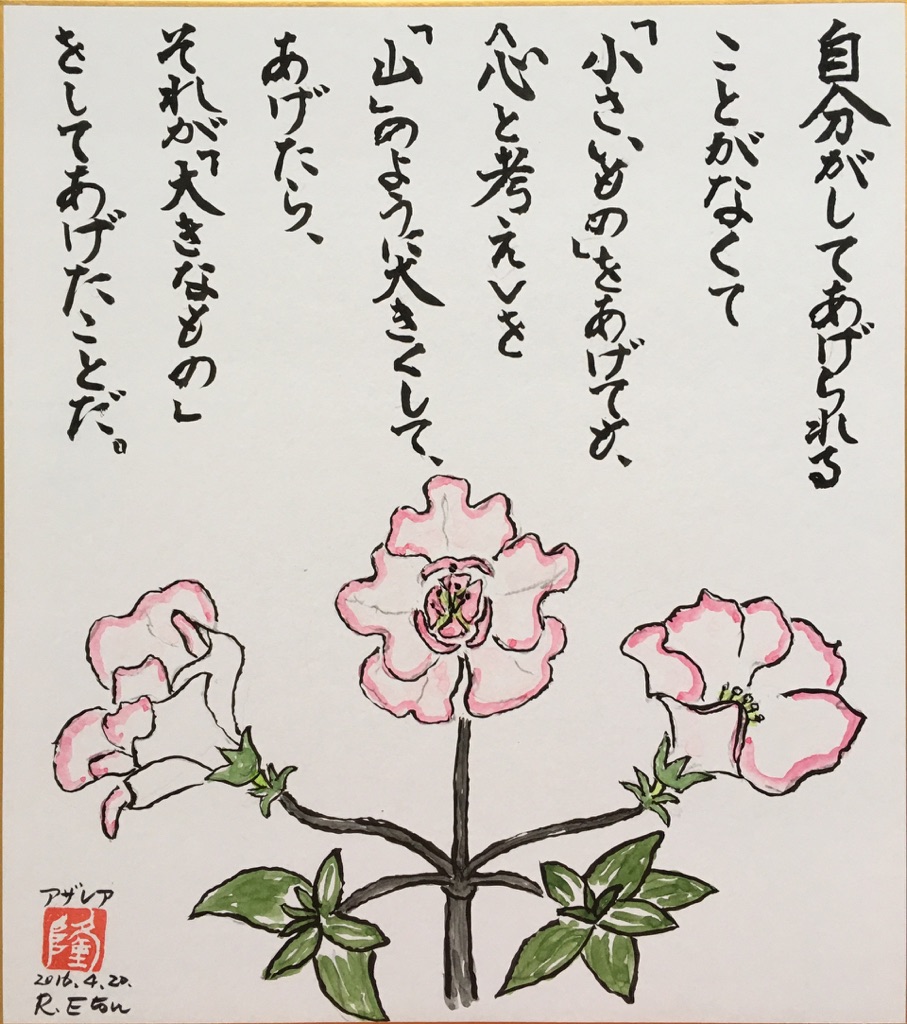 自分がしてあげられる
ことがなくて
「小さいもの」をあげても、
〈心と考え〉を
「山」のように大きくして、
あげたら、
それが「大きなもの」
をしてあげたことだ。
アザレア
隆
2016.4.20.
R.